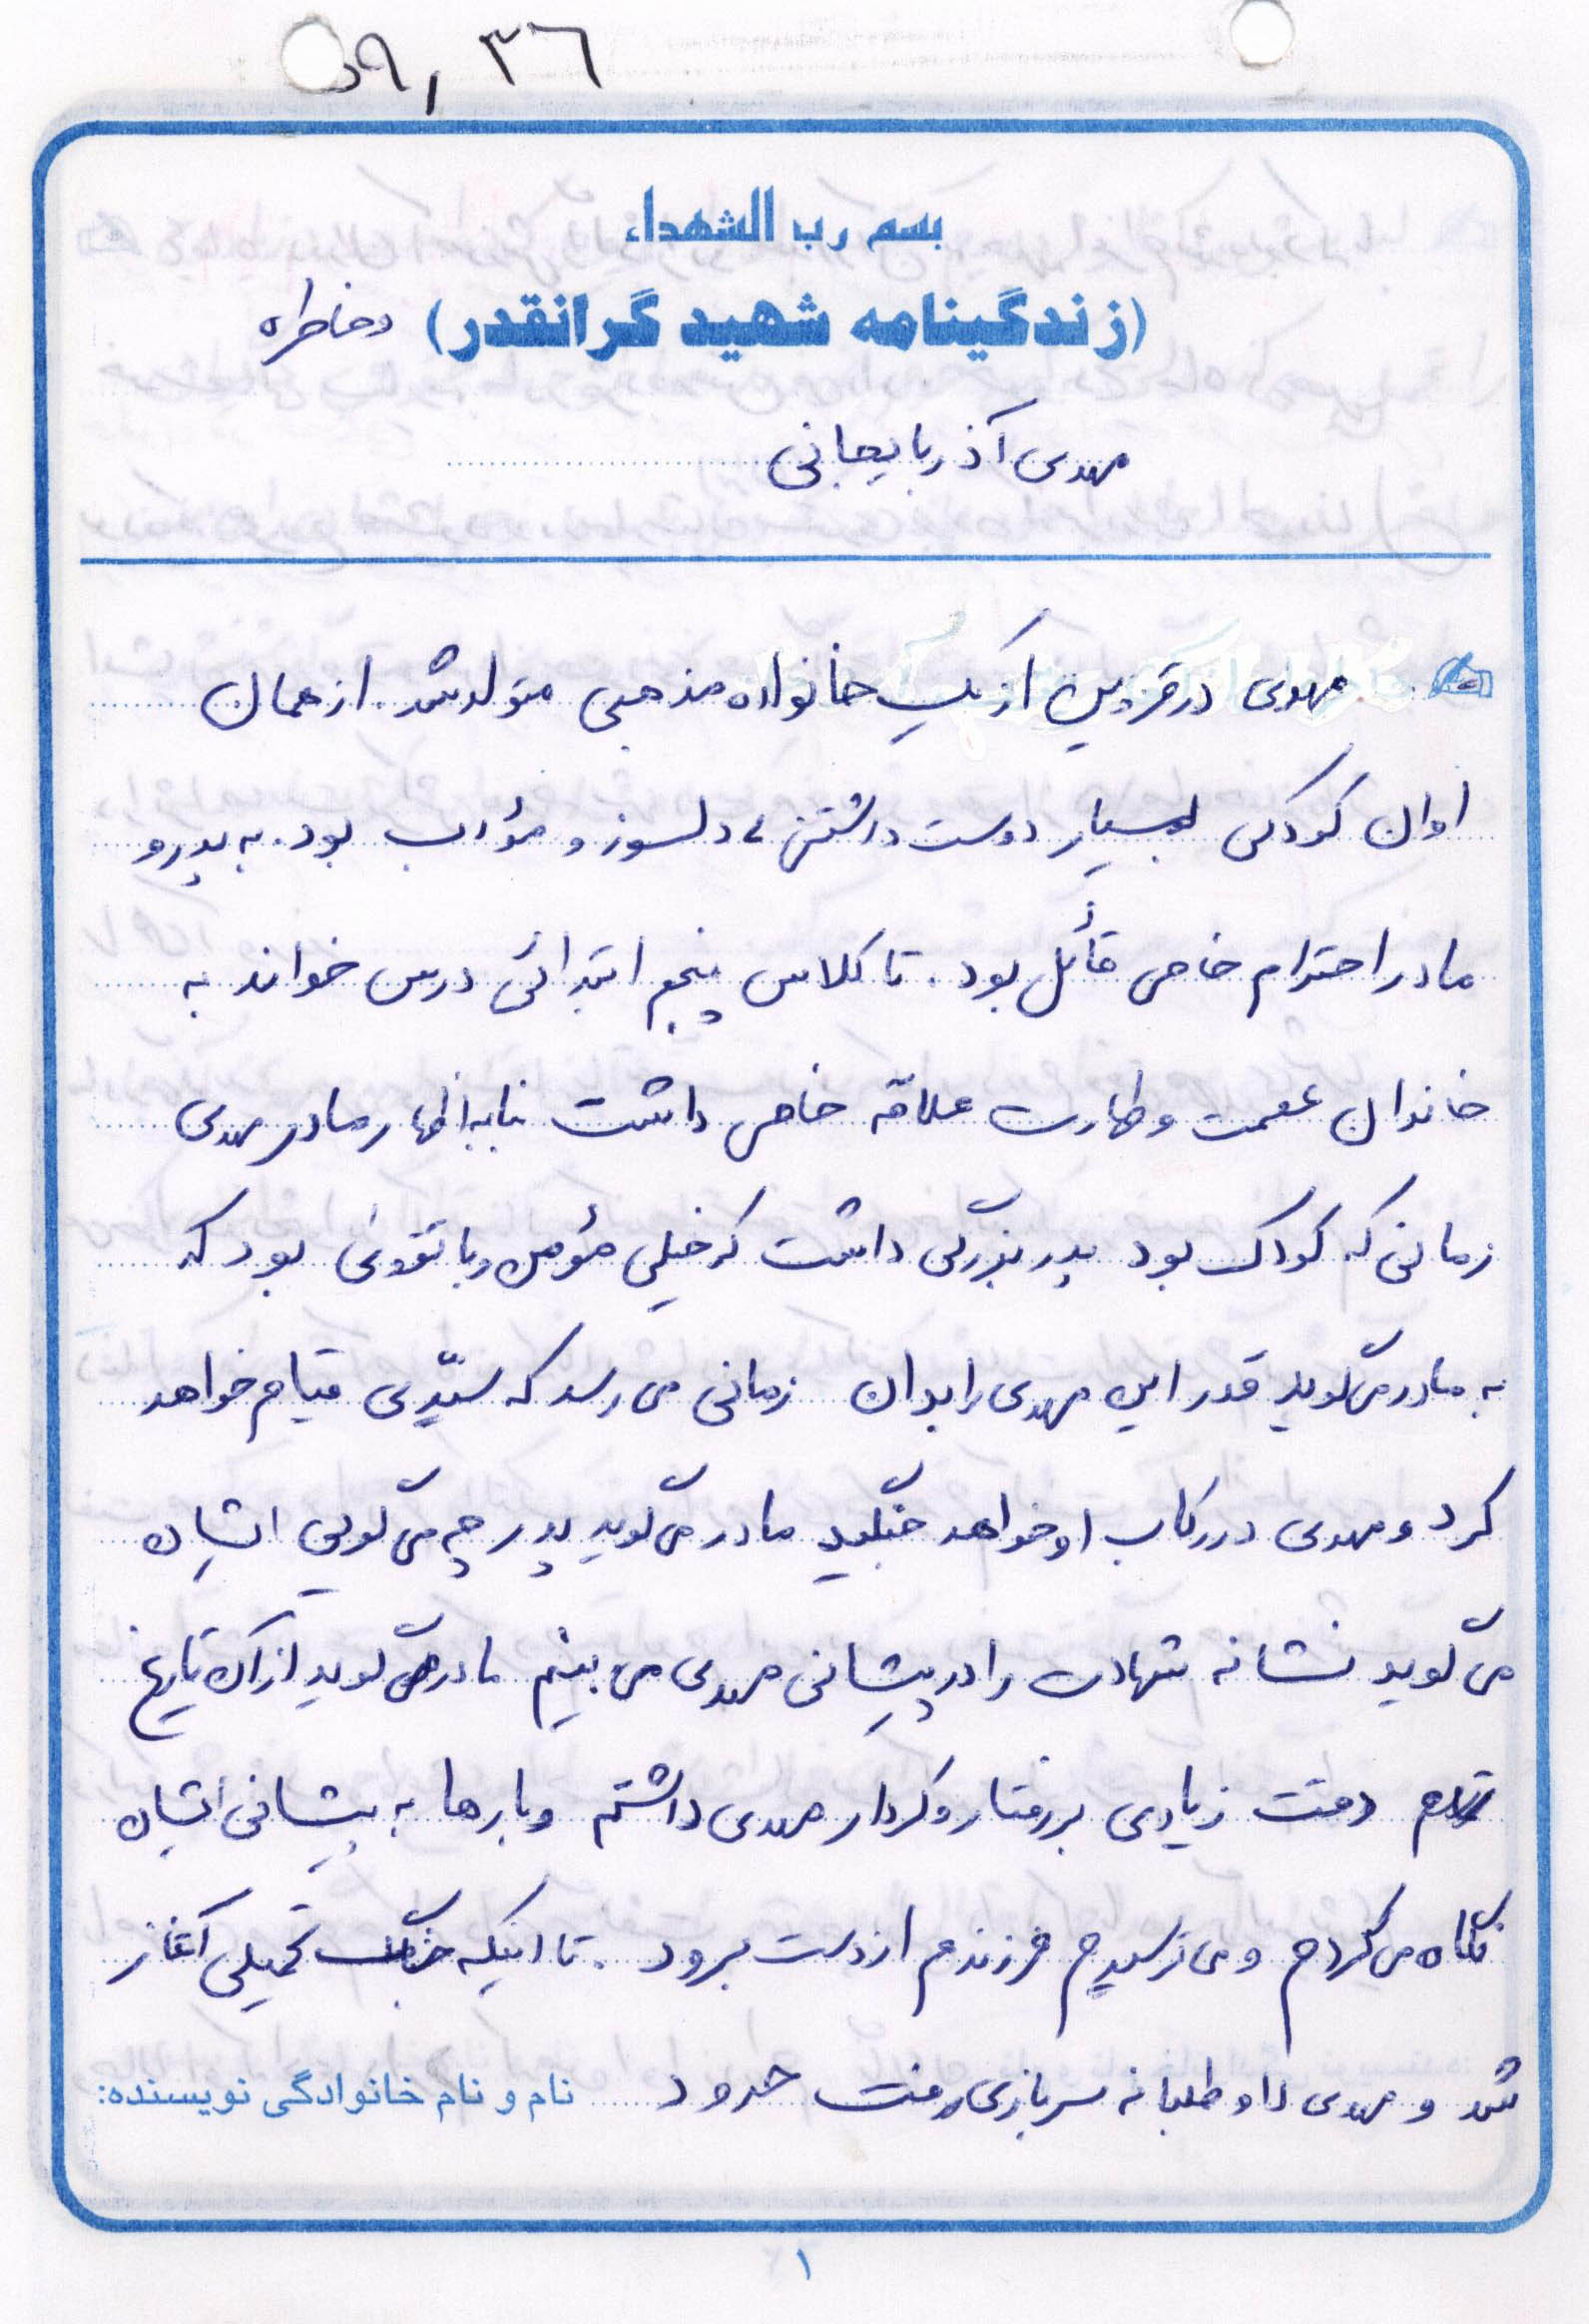 ۵۹,۳۶
بسم رب الشهداء
(زندگینامه شهید گرانقدر) و خاطره
مهدی آذربایجانی
مهدی در قزوین از یک خانواده مذهبی متولد شد. از همان
اوان کودکی بسیار دوست داشتنی، دلسوز و مؤدب بود. به پدر و
مادر احترام خاصی قائل بود. تا کلاس پنجم ابتدائی درس خواند به
خاندان عصمت و طهارت علاقه خاصی داشت بنا به اظهار مادر مهدی
زمانی که کودک بود پدربزرگی داشت که خیلی مؤمن و با تقوی بود که
به مادر می‌گوید قدر این مهدی را بدان زمانی می رسد که سیّدی قیام خواهد
کرد و مهدی در رکاب او خواهد جنگید مادر می‌گوید پدر چه می‌گویی ایشان
می‌گوید نشانه شهادت را در پیشانی مهدی می بینم مادر می‌گوید از آن تاریخ
دقت زیادی بر رفتار و کردار مهدی داشتم و بارها به پیشانی ایشان
نگاه می کردم و می ترسیدم فرزندم از دست برود. تا اینکه جنگ تحمیلی آغاز
شد و مهدی داوطلبانه سربازی رفت حدود
نام و نام خانوادگی نویسنده:
۱